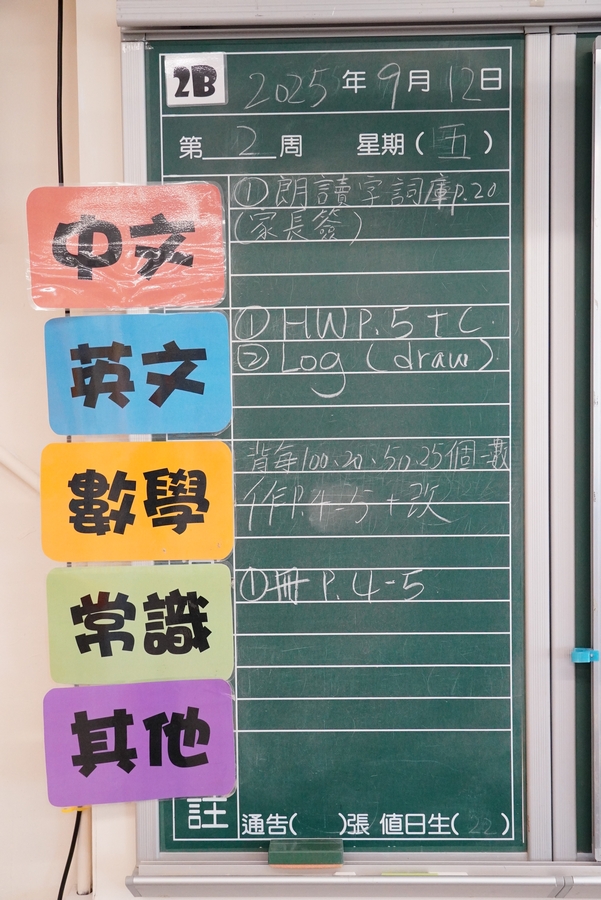 2B 2025年9月12日
第 2 周 星期(五)
中文
①朗讀字詞庫p.20
(家長簽)
英文
① HW P.5 + C.
② Log (draw)
數學
背每100、20、50、25個一數
作P.4-5+改
常識
①冊 P.4-5
其他
註 通告( )張 值日生(22)